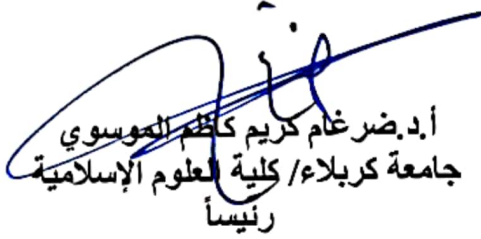 أ.د.ضرغام كريم كاظم الموسوي
جامعة كربلاء/ كلية العلوم الإسلامية
رئيساً